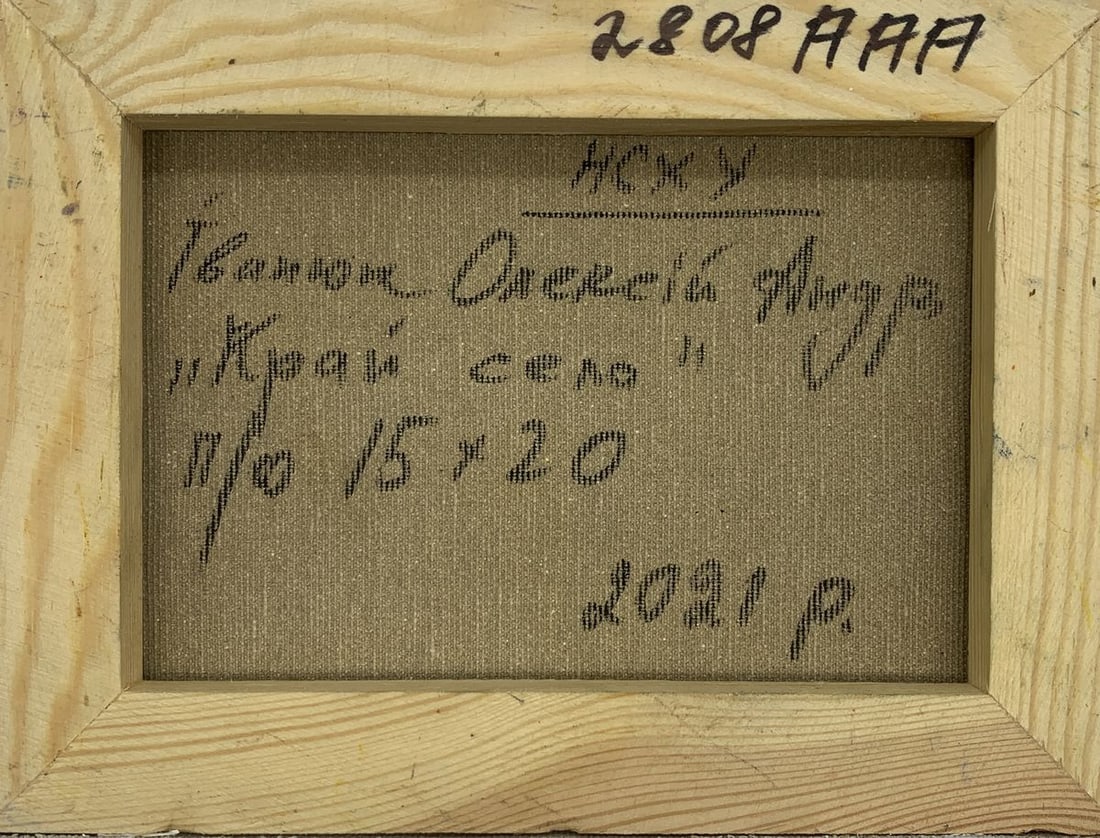 2808 ААА
НСХУ
Іванюк Олексій Андр
„Край село"
п/о 15 х 20
2021 р.